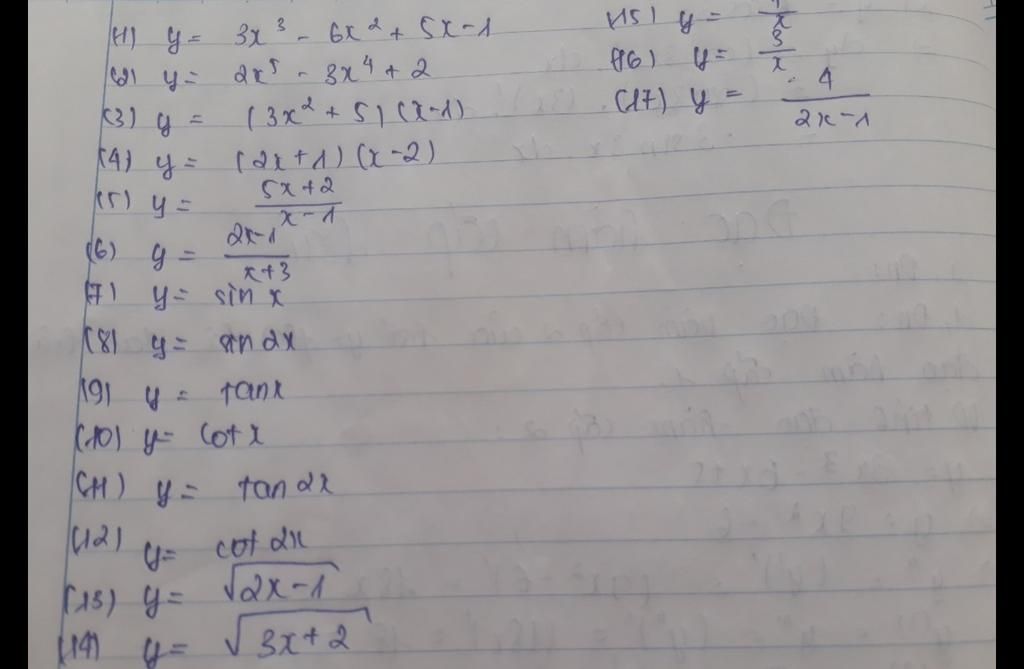 (1) y = 3x³ - 6x² + 5x - 1
(2) y = 2x⁵ - 3x⁴ + 2
(3) y = (3x² + 5)(x - 1)
(4) y = (2x + 1)(x - 2)
(5) y = (5x + 2)/(x - 1)
(6) y = (2x - 1)/(x + 3)
(7) y = sin x
(8) y = sin 2x
(9) y = tan x
(10) y = cot x
(11) y = tan 2x
(12) y = cot 2x
(13) y = √(2x - 1)
(14) y = √(3x + 2)
(15) y = 1/x
(16) y = 3/x
(17) y = 4/(2x - 1)